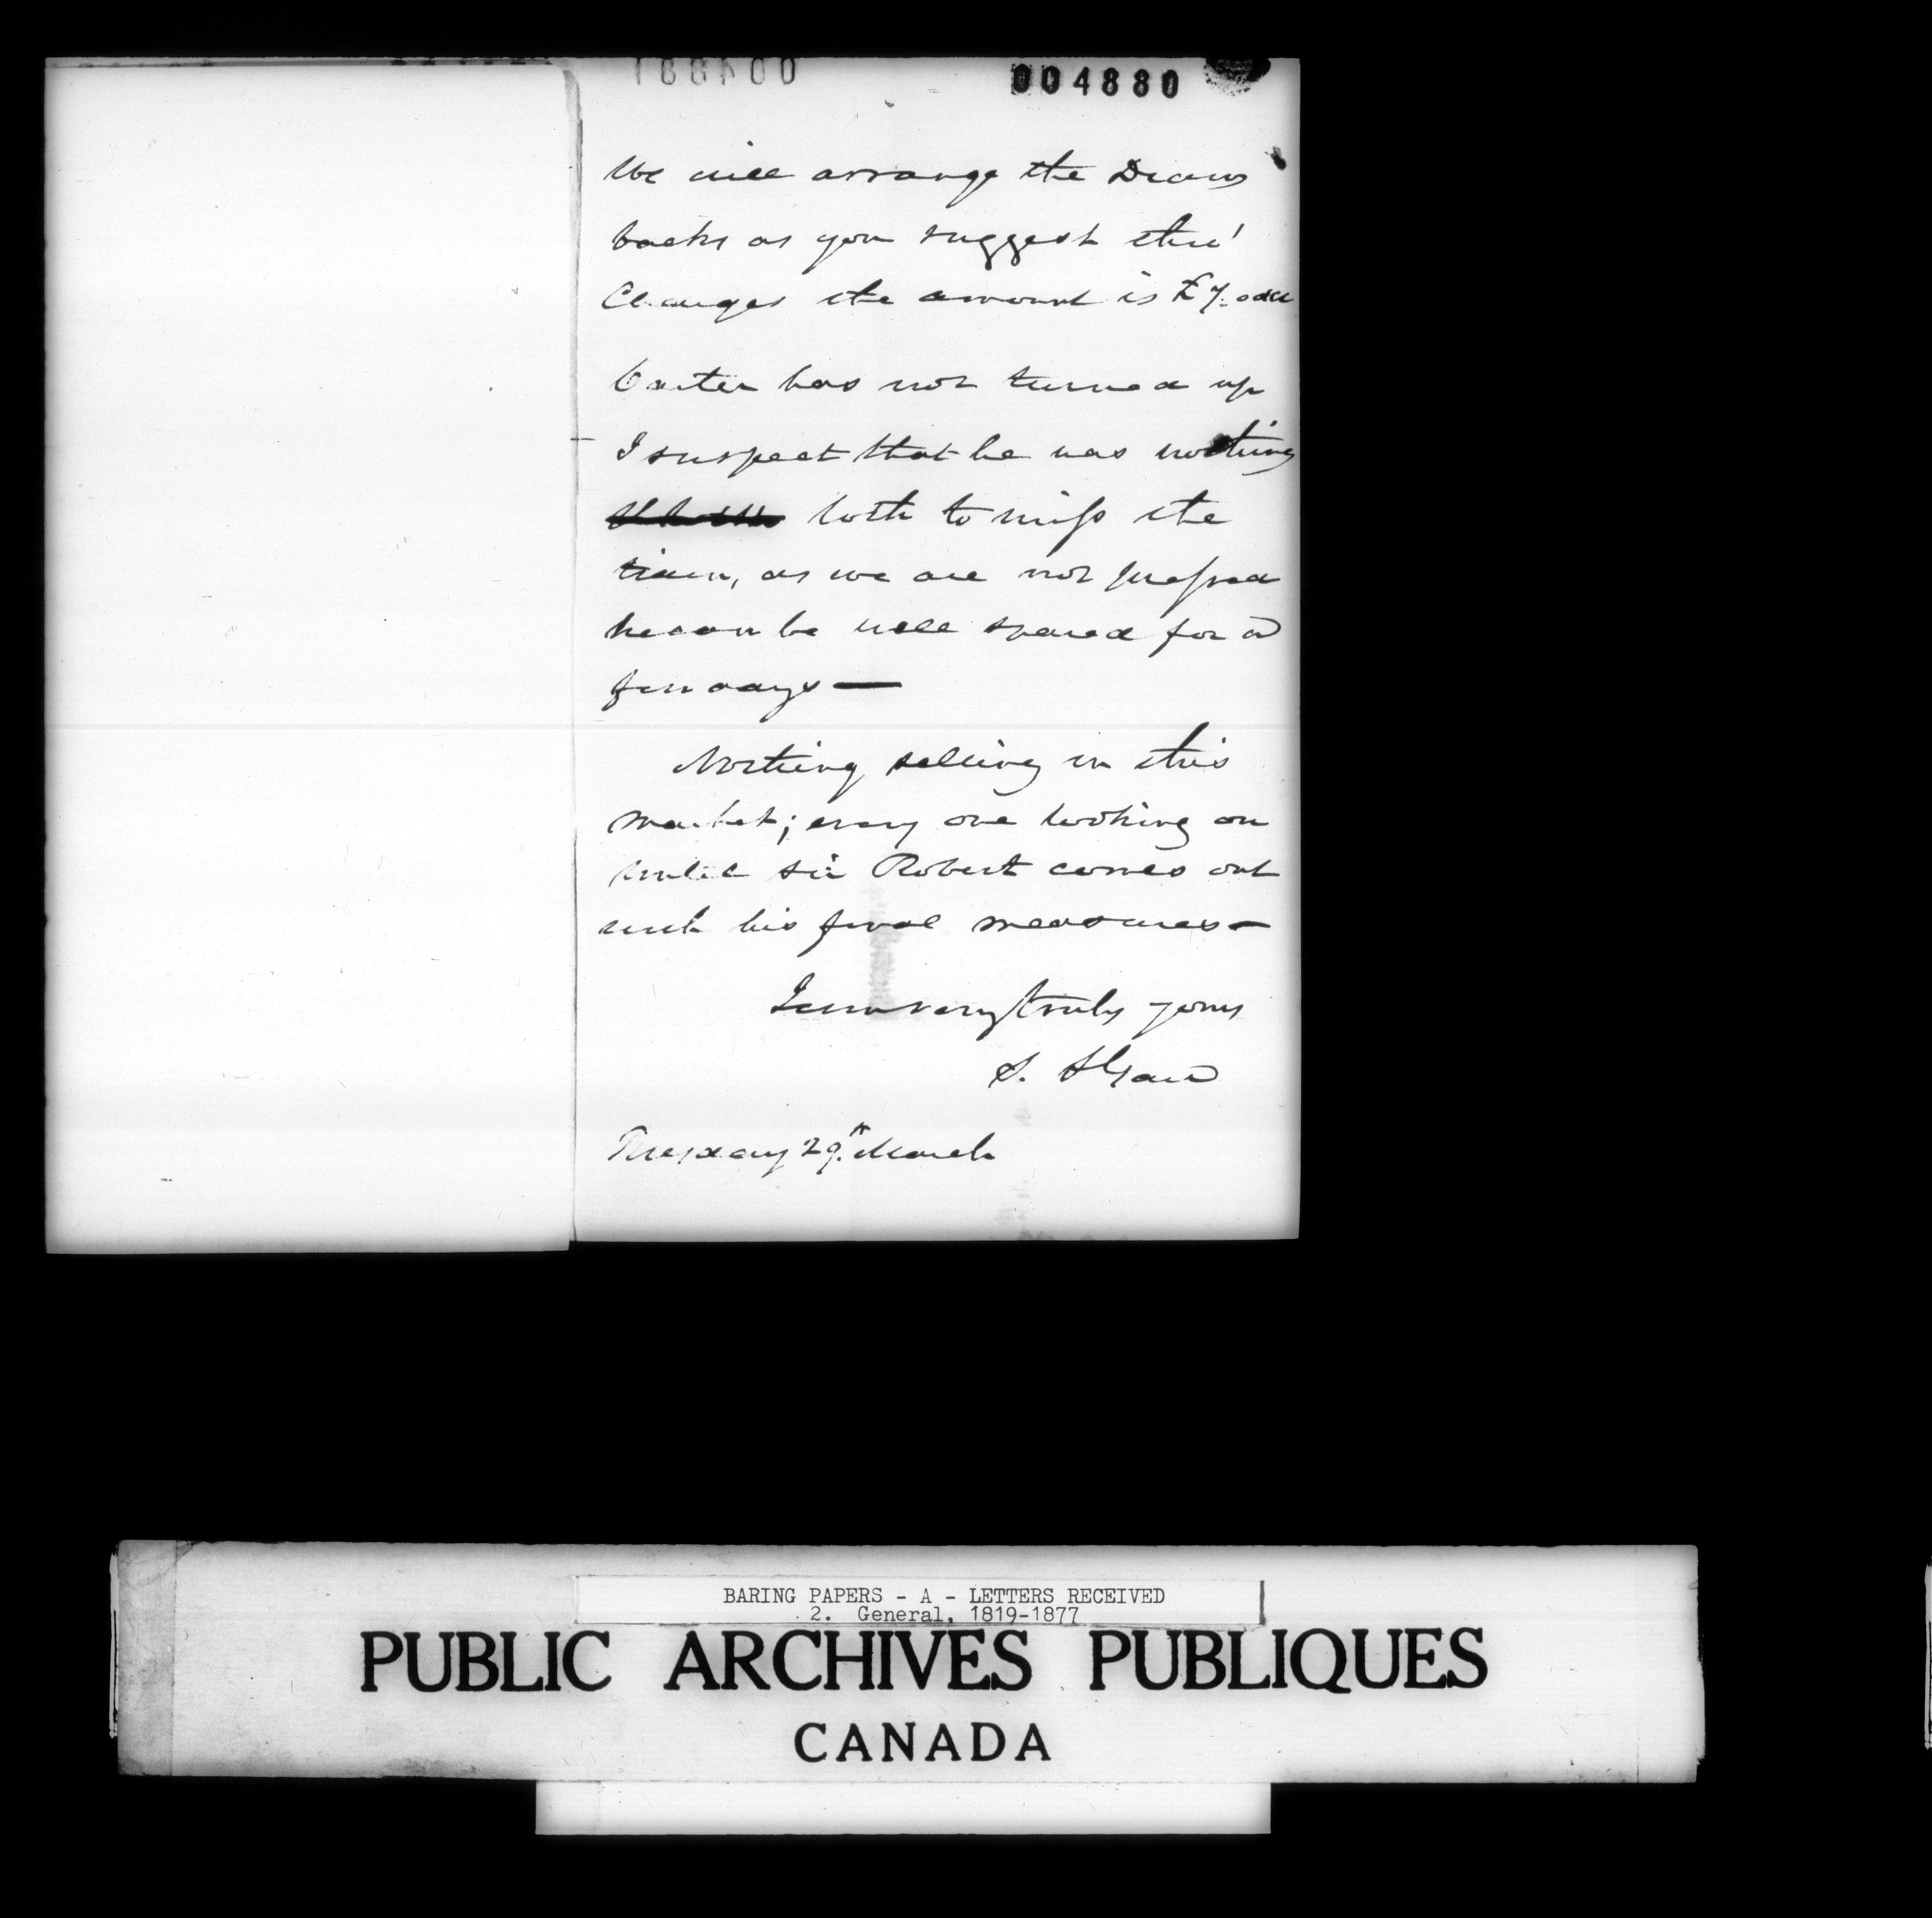 004880
We will arrange the Draw
backs as you suggest thro'
Charges the amount is £7. odd
Carter has not turned up
I suspect that he was nothing
loth to miss the
train, as we are not pressed
he can be well spared for a
few days —
Nothing selling in this
market; every one looking on
until Sir Robert comes out
with his final measures —
I am very truly yours
S.
Tuesday 29th March
BARING PAPERS - A - LETTERS RECEIVED
2. General, 1819-1877
PUBLIC ARCHIVES PUBLIQUES
CANADA